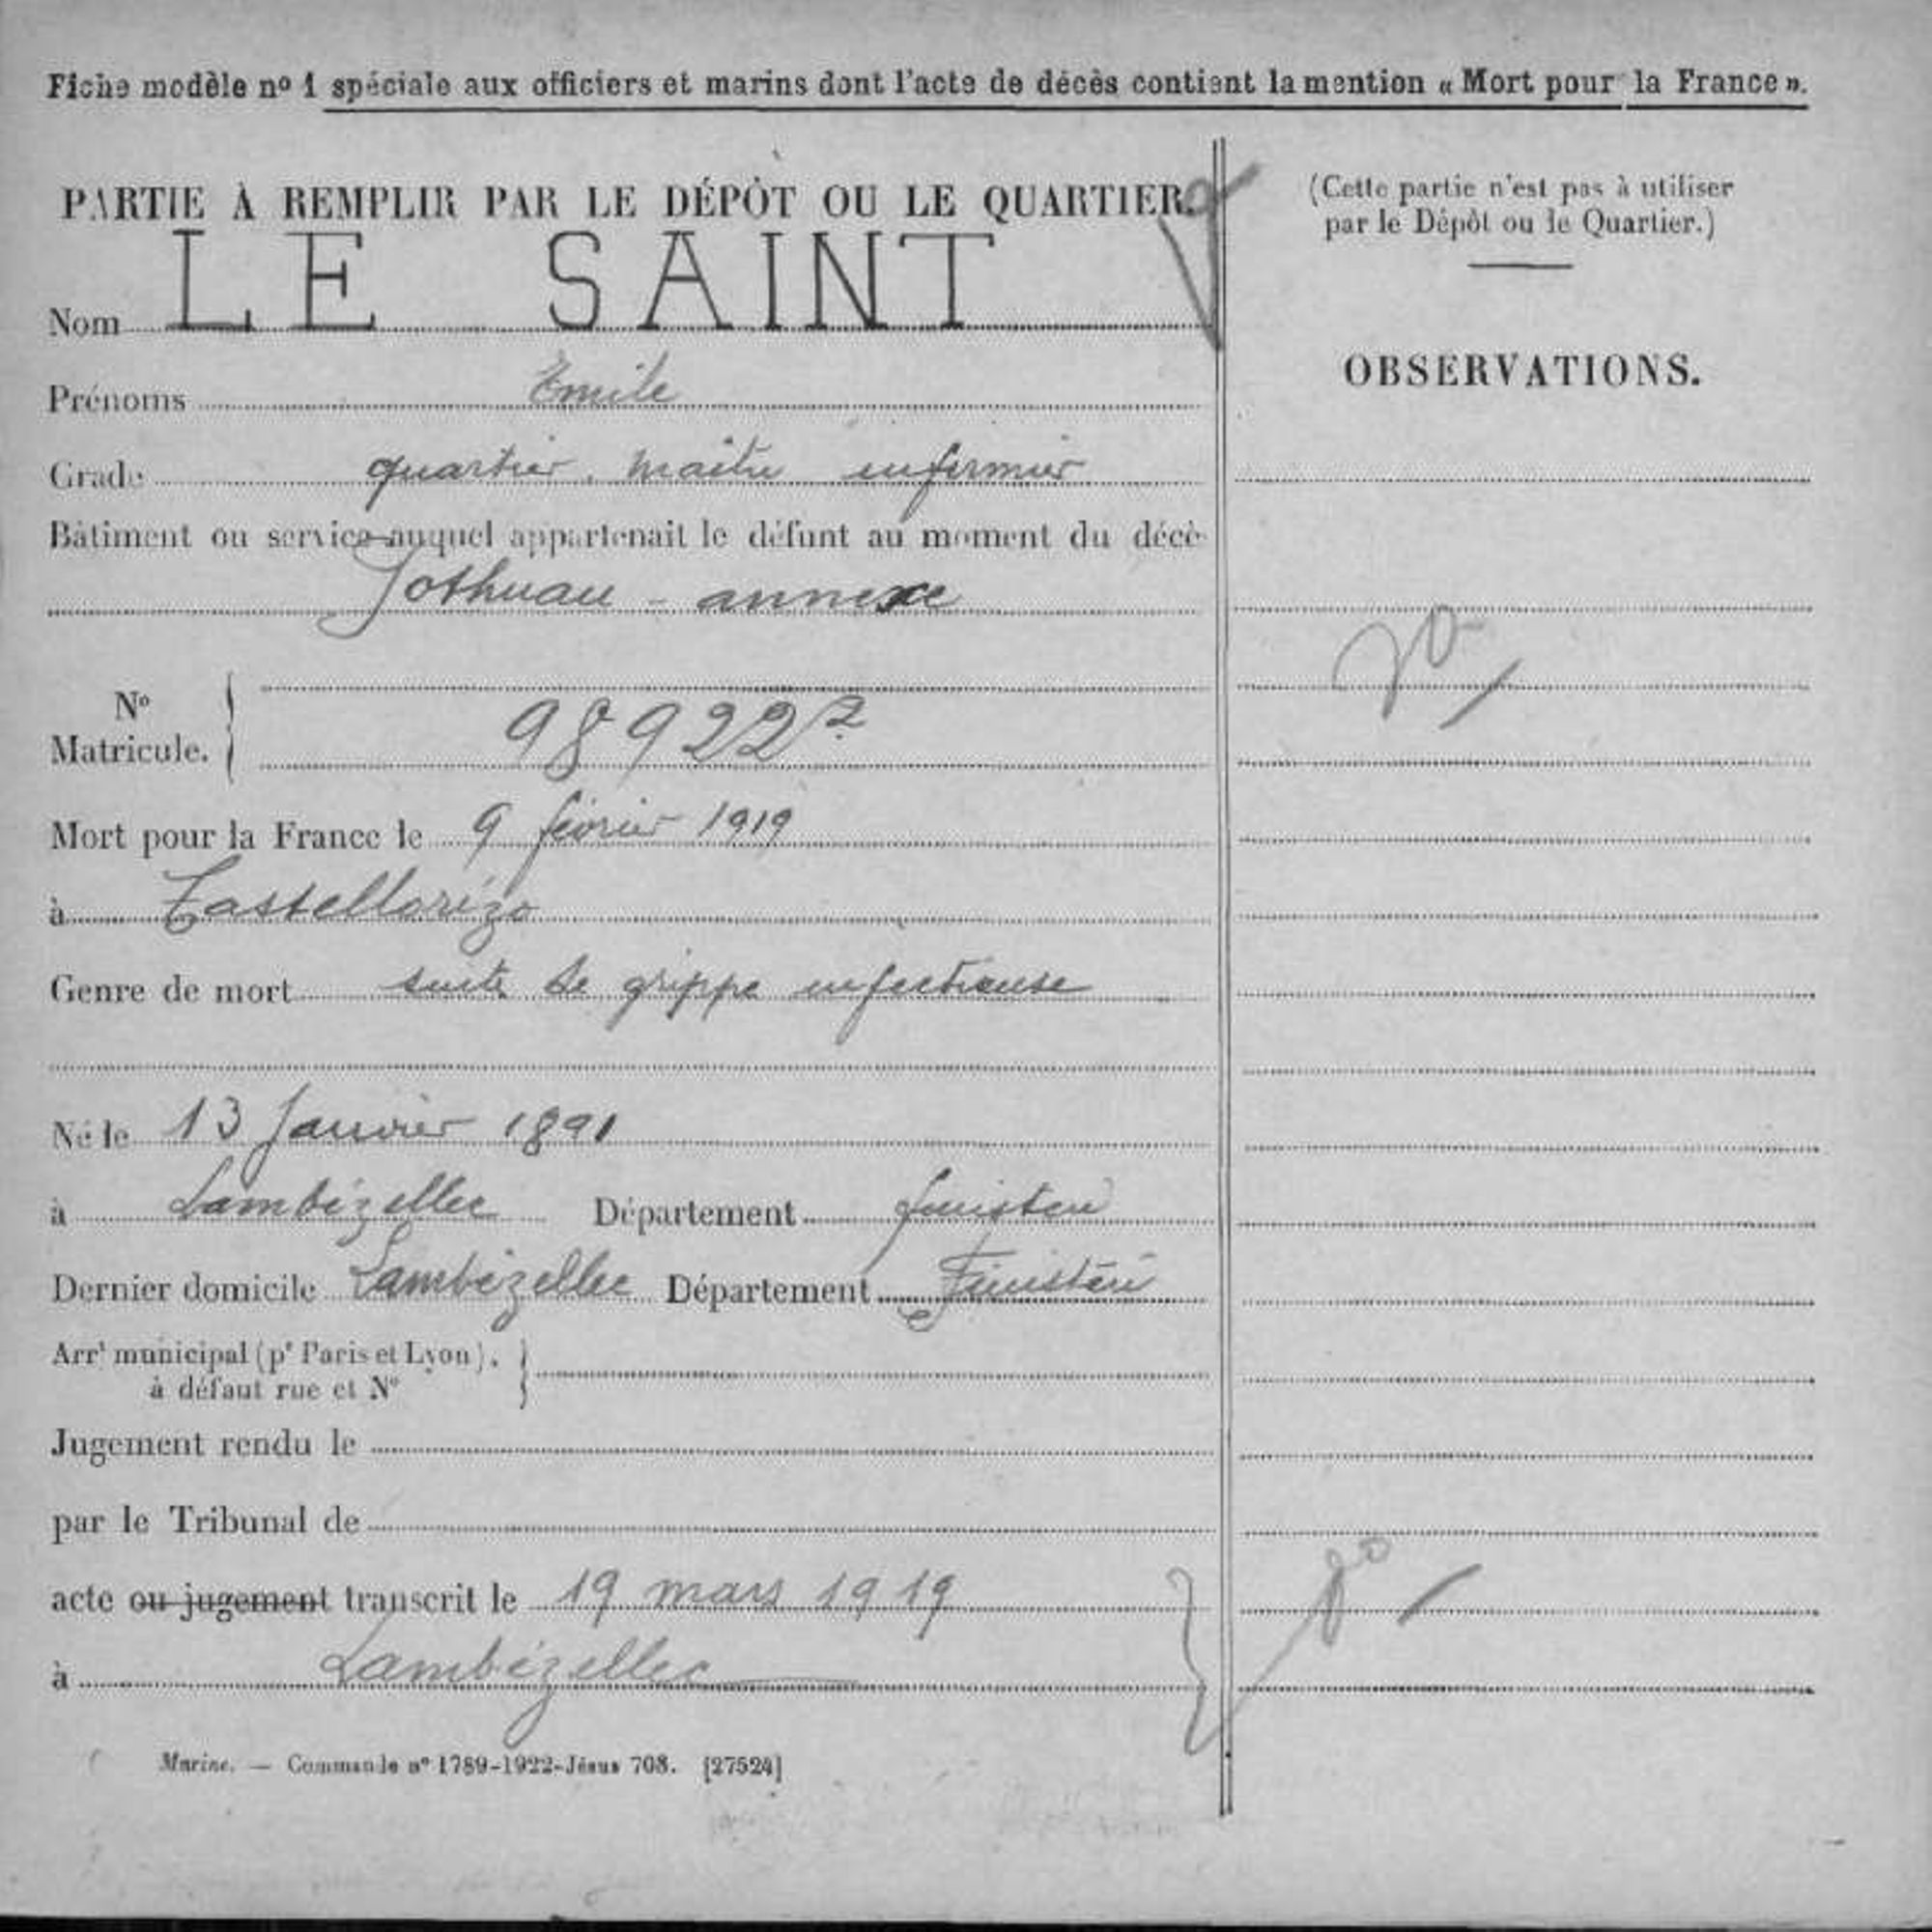 Fiche modèle nº 1 spéciale aux officiers et marins dont l'acte de décès contient la mention « Mort pour la France ».
PARTIE À REMPLIR PAR LE DÉPÔT OU LE QUARTIER.
Nom LE SAINT
Prénoms Emile
Grade quartier maître infirmier
Bâtiment ou service auquel appartenait le défunt au moment du décè
annexe
Nº Matricule. 98922 2
Mort pour la France le 9 février 1919
à Castellorizo
Genre de mort suite de grippe infectieuse
Né le 13 Janvier 1891
à Lambézellec Département finistère
Dernier domicile Lambézellec Département Finistère
Arrt municipal (pr Paris et Lyon).
à défaut rue et Nº
Jugement rendu le
par le Tribunal de
acte ou jugement transcrit le 19 mars 1919
à Lambézellec
Marine. — Commande nº 1789-1922-Jésus 708. [27524]
(Cette partie n'est pas à utiliser
par le Dépôt ou le Quartier.)
OBSERVATIONS.